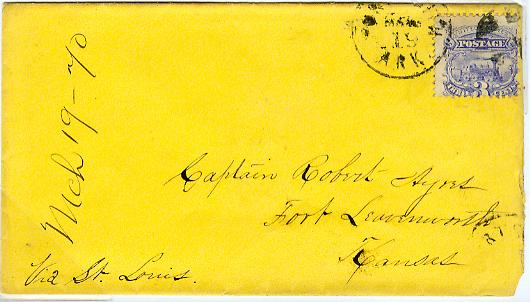 MAR
19
ARK
POSTAGE
3
Mch 19-70
Captain Robert Ayres
Fort Leavenworth
Kansas
Via St. Louis.